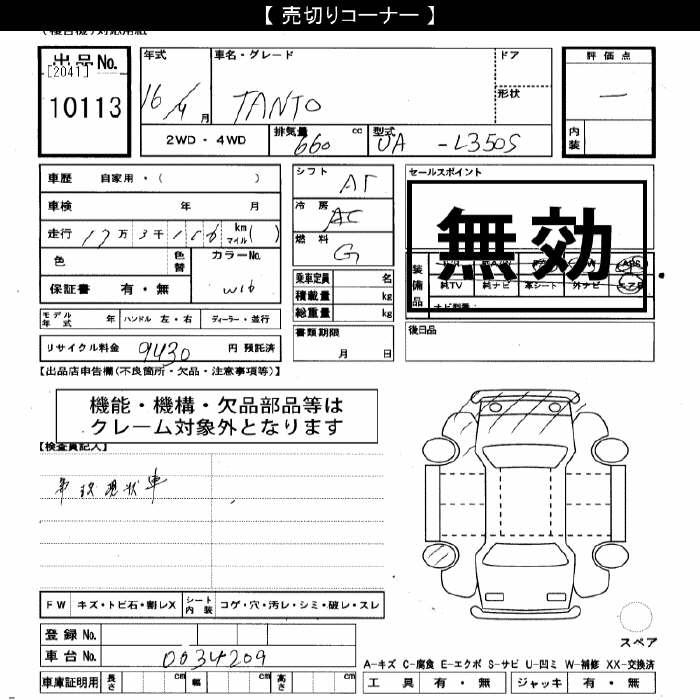 【 売切りコーナー 】
出品No.
[2041]
10113
年式
16/4 月
車名・グレード
TANTO
ドア
形状
評価点
―
内装
2WD・4WD
排気量
660 cc
型式
UA -L350S
車歴 自家用・( )
車検 年 月
走行 17万3千
km
マイル( )
色
色替
カラーNo.
W16
保証書 有・無
モデル年式 年
ハンドル 左・右
ディーラー・並行
リサイクル料金 9430 円 預託済
シフト
AT
冷房
AC
燃料
G
乗車定員 名
積載量 kg
総重量 kg
書類期限
月 日
セールスポイント
無効
装備品
純TV
純ナビ
革シート
外ナビ
エアB
後日品
【出品店申告欄(不良箇所・欠品・注意事項等)】
機能・機構・欠品部品等は
クレーム対象外となります
【検査員記入】
現状車
FW キズ・トビ石・割レX
シート内装
コゲ・穴・汚レ・シミ・破レ・スレ
登録No.
車台No. 0034209
車庫証明用
長さ cm
幅 cm
高さ cm
スペア
A-キズ C-腐食 E-エクボ S-サビ U-凹ミ W-補修 XX-交換済
工具 有・無
ジャッキ 有・無